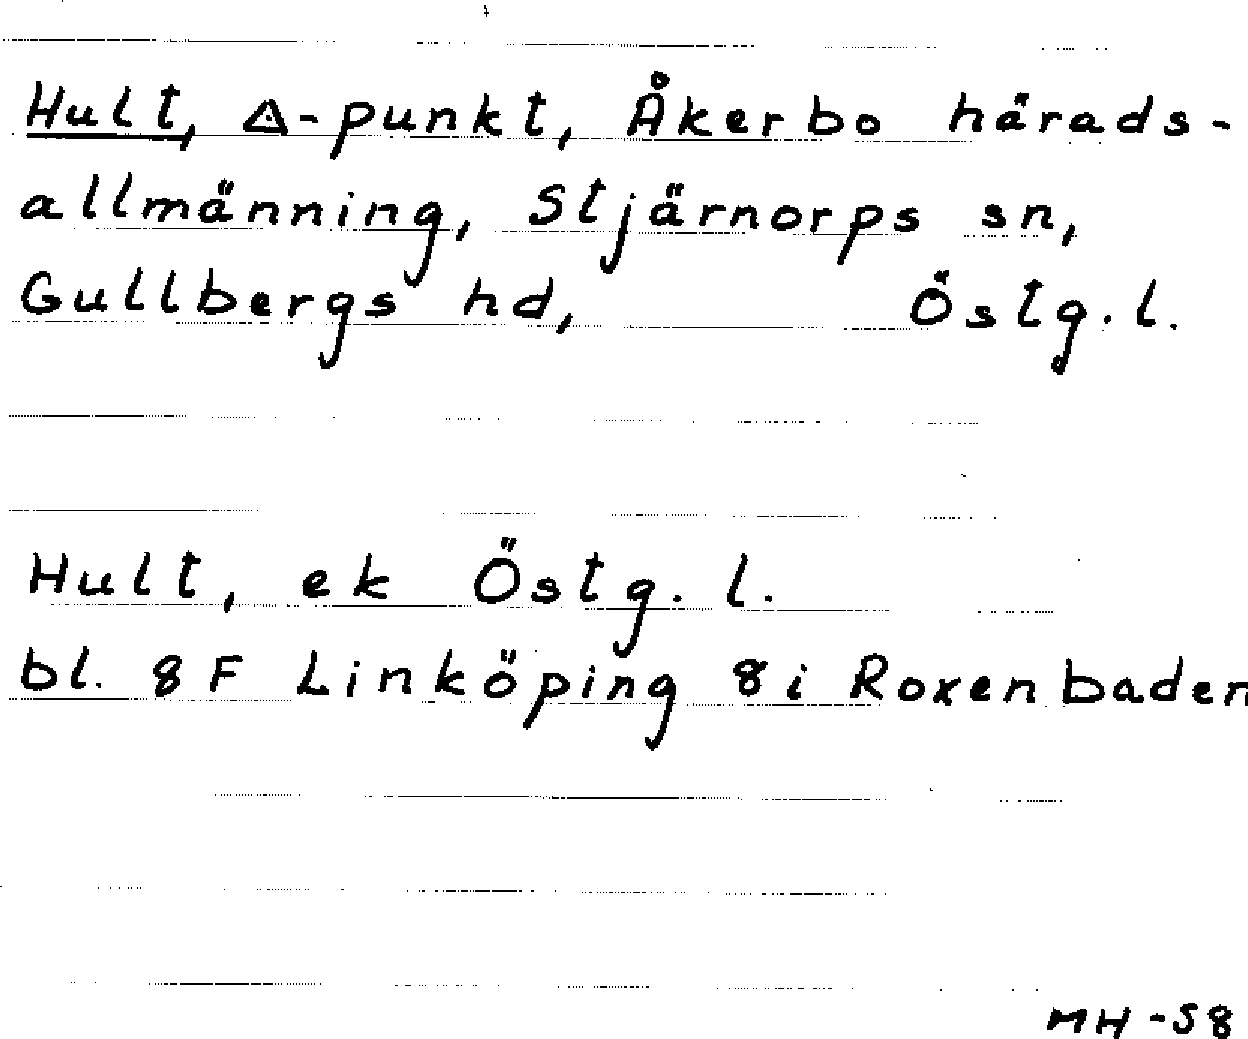 Hult, Δ-punkt, Åkerbo härads-
allmänning, Stjärnorps sn,
Gullbergs hd, Östg. l.
Hult, ek Östg. l.
bl. 8 F Linköping 8 i Roxenbaden
MH -58